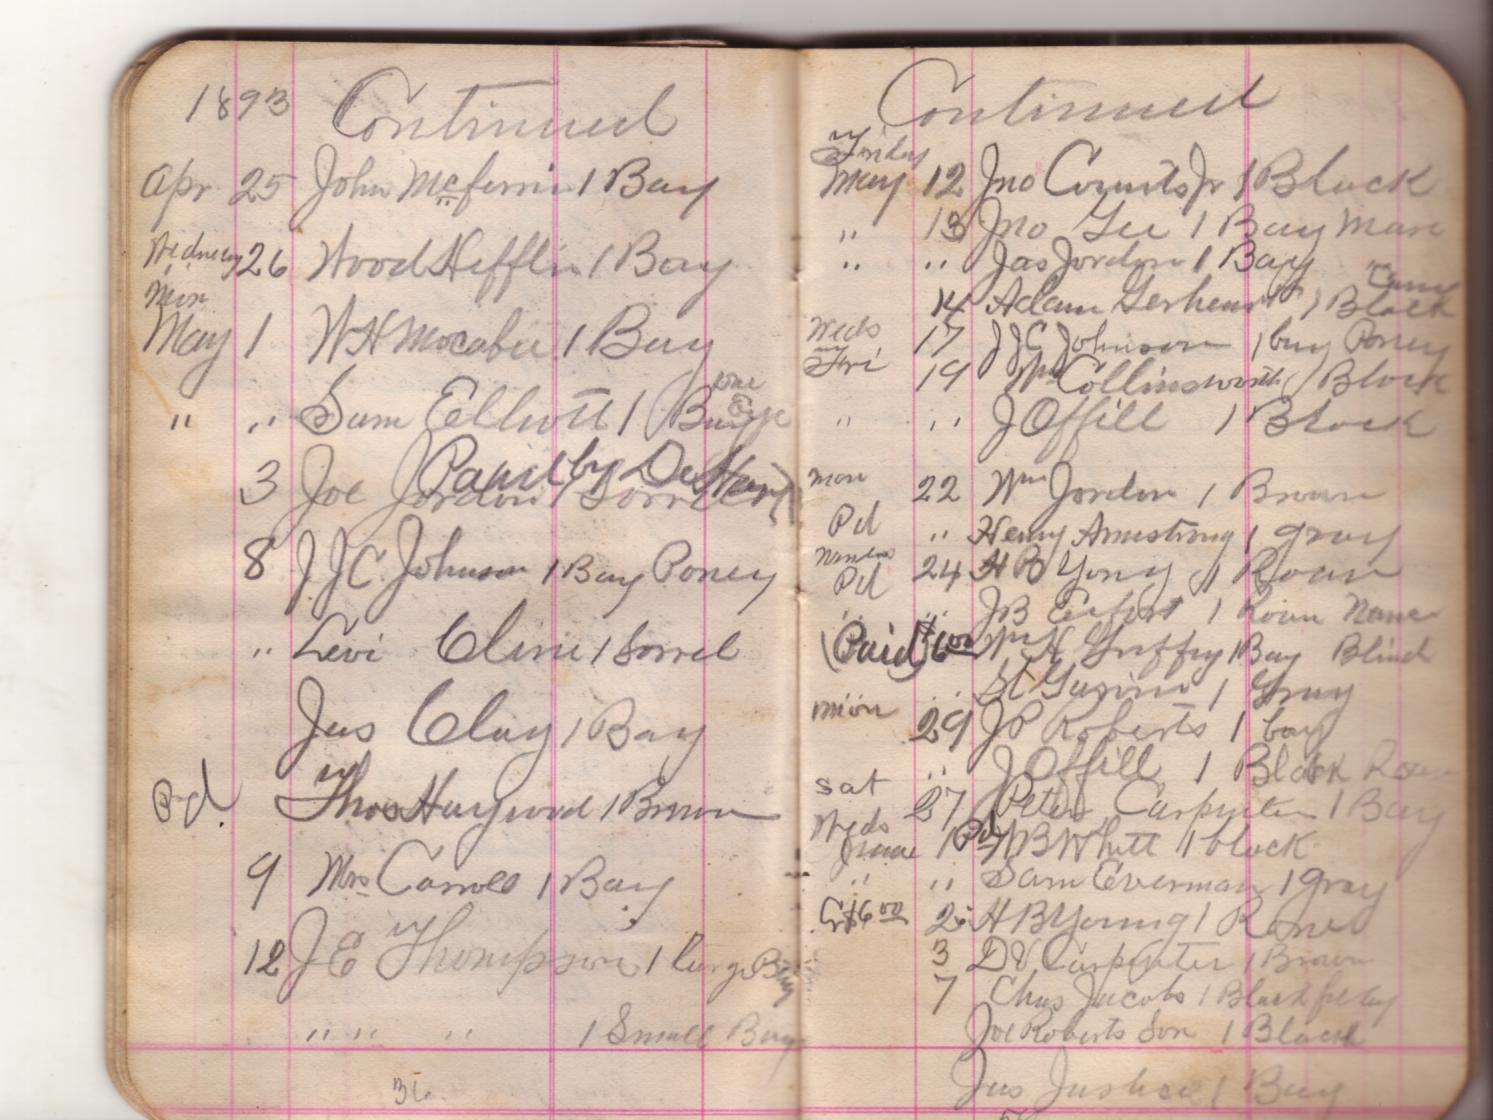 1893 Continued
Apr 25 John Mcferrin 1 Bay
Wednesay 26 Wood Hefflin 1 Bay
Mon
May 1 W H Mocabee 1 Bay
one
" " Sam Elliott 1 Bay Eye
Paid by
3 Joe Jordon 1 Sorrel
8 J.J.C. Johnson 1 Bay Poney
" Levi Cline 1 Sorrel
Jas Clay 1 Bay
Pd. Thos Haywood 1 Brown
9 Mrs Carroll 1 Bay
12 J E Thompson 1 Large Bay
" " " 1 Small Bay
36
Continued
Friday
May 12 Jno Counts Jr 1 Black
" 13 Jno Gee 1 Bay Mare
" " Jas Jordon 1 Bay
14 Adam 1 Black
Weds 17 J J C Johnson 1 bay Poney
Fri 19 Wm Collinsworth 1 Black
" " J Offill 1 Black
Mon 22 Wm Jordon 1 Brown
Pd " Henry Armstrong 1 gray
Pd 24 H B Yong 1 Roan
" " J B 1 Roan
(Paid) $6 00 Wm H Griffey 1 Bay Blind
" 1 Gray
Mon 29 J P Roberts 1 bay
" J Offill 1 Black
Sat 27 Peter Carpenter 1 Bay
Weds
June 1 Pd W B Whitt 1 black
" " Sam Everman 1 gray
$6 00 2 H B Young 1 Rone
3 D V Carpenter 1 Brown
7 Chas Jacobs 1 Black
Joe Roberts Son 1 Black
Jas Justice 1 Bay